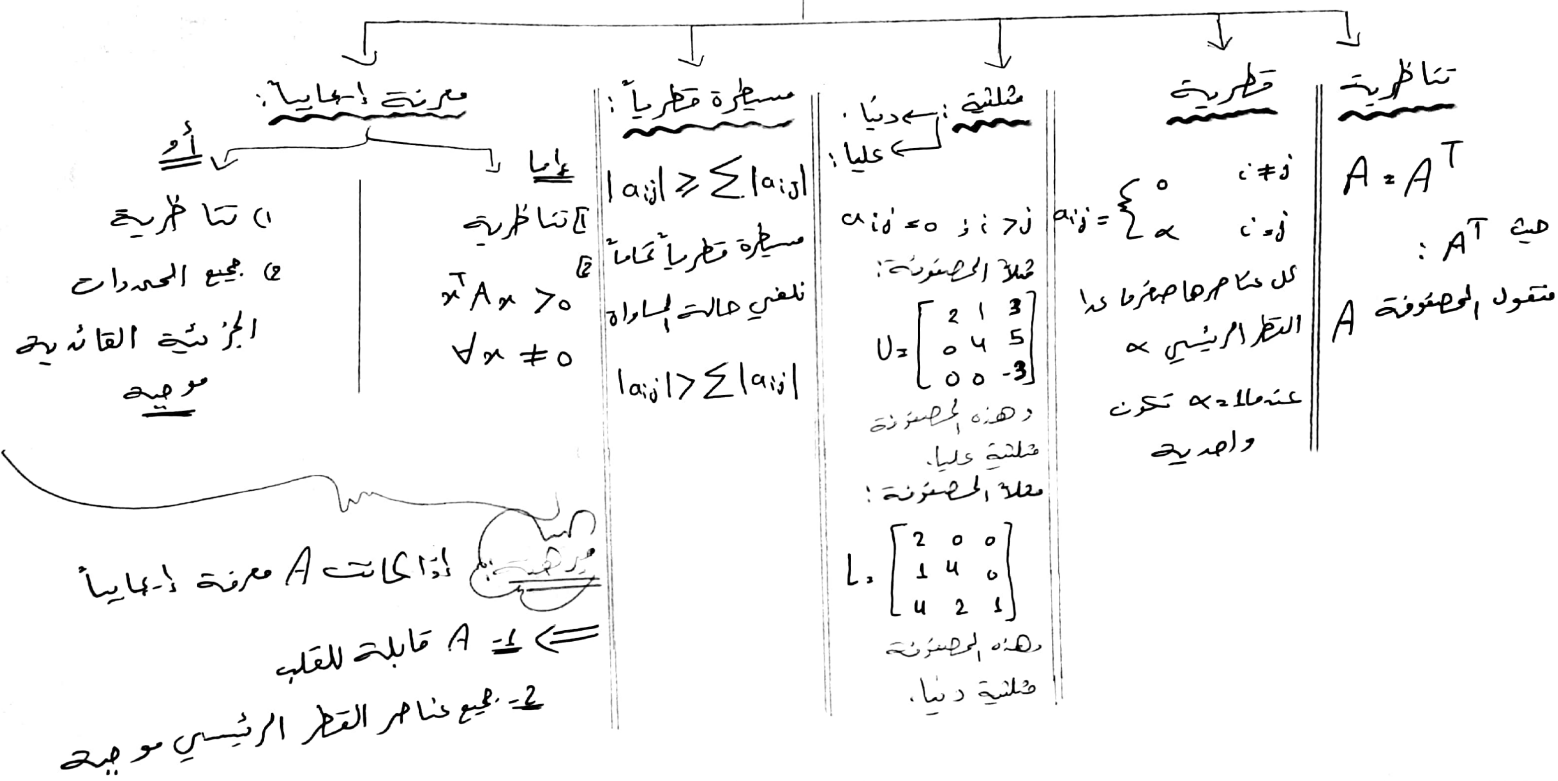 تناظرية
A = A^T
حيث A^T :
منقول المصفوفة A
قطرية
a_ij = { 0 i ≠ j
α i = j
كل عناصرها صفر ما عدا
القطر الرئيسي α
عندما α = 1 تكون
واحدية
مثلثية : ← دنيا .
← عليا :
a_ij = 0 ; i > j
مثلاً المصفوفة :
U = [ 2 1 3
0 4 5
0 0 -3 ]
وهذه المصفوفة
مثلثية عليا.
مثلاً المصفوفة :
L = [ 2 0 0
1 4 0
4 2 1 ]
وهذه المصفوفة
مثلثية دنيا.
مسيطرة قطرياً :
|a_ij| ⩾ ∑ |a_ij|
مسيطرة قطرياً تماماً
نلغي حالة المساواة
|a_ij| > ∑ |a_ij|
معرفة إيجابياً :
إما
1 تناظرية
2 x^T A x > 0
∀x ≠ 0
أو
1) تناظرية
2) جميع المحددات
الجزئية القائدية
موجبة
مبرهنة : إذا كانت A معرفة إيجابياً
⇐ 1- A قابلة للقلب
2- جميع عناصر القطر الرئيسي موجبة